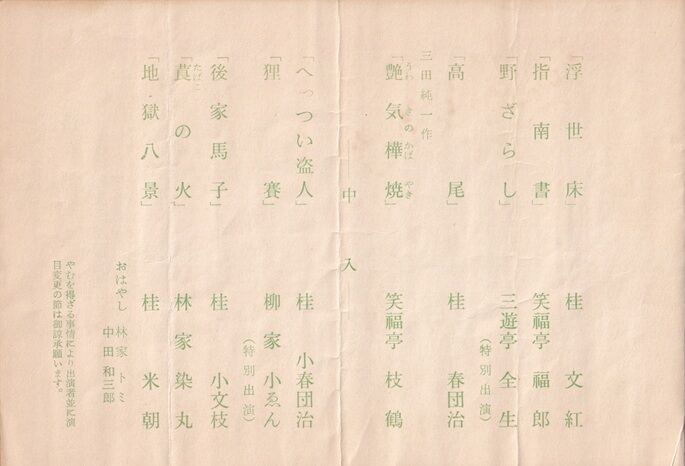 「浮世床」 桂 文紅
「指南書」 笑福亭 福郎
「野ざらし」 三遊亭 全生
(特別出演)
「高尾」 桂 春団治
三田純一作
「艶気樺焼」 笑福亭 枝鶴
うわ きの かば やき
中入
「へっつい盗人」 桂 小春団治
「狸賽」 柳家 小ゑん
(特別出演)
「後家馬子」 桂 小文枝
「莨の火」 林家 染丸
たばこ
「地獄八景」 桂 米朝
おはやし 林家 トミ
中田 和三郎
やむを得ざる事情により出演者並に演
目変更の節は御諒承願います。